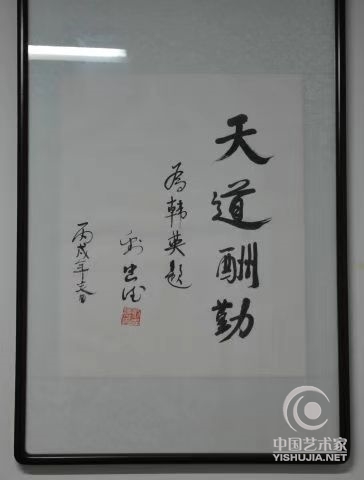 天道酬勤
为韩英题
丙戌年春
中国艺术家
YISHUJIA.NET